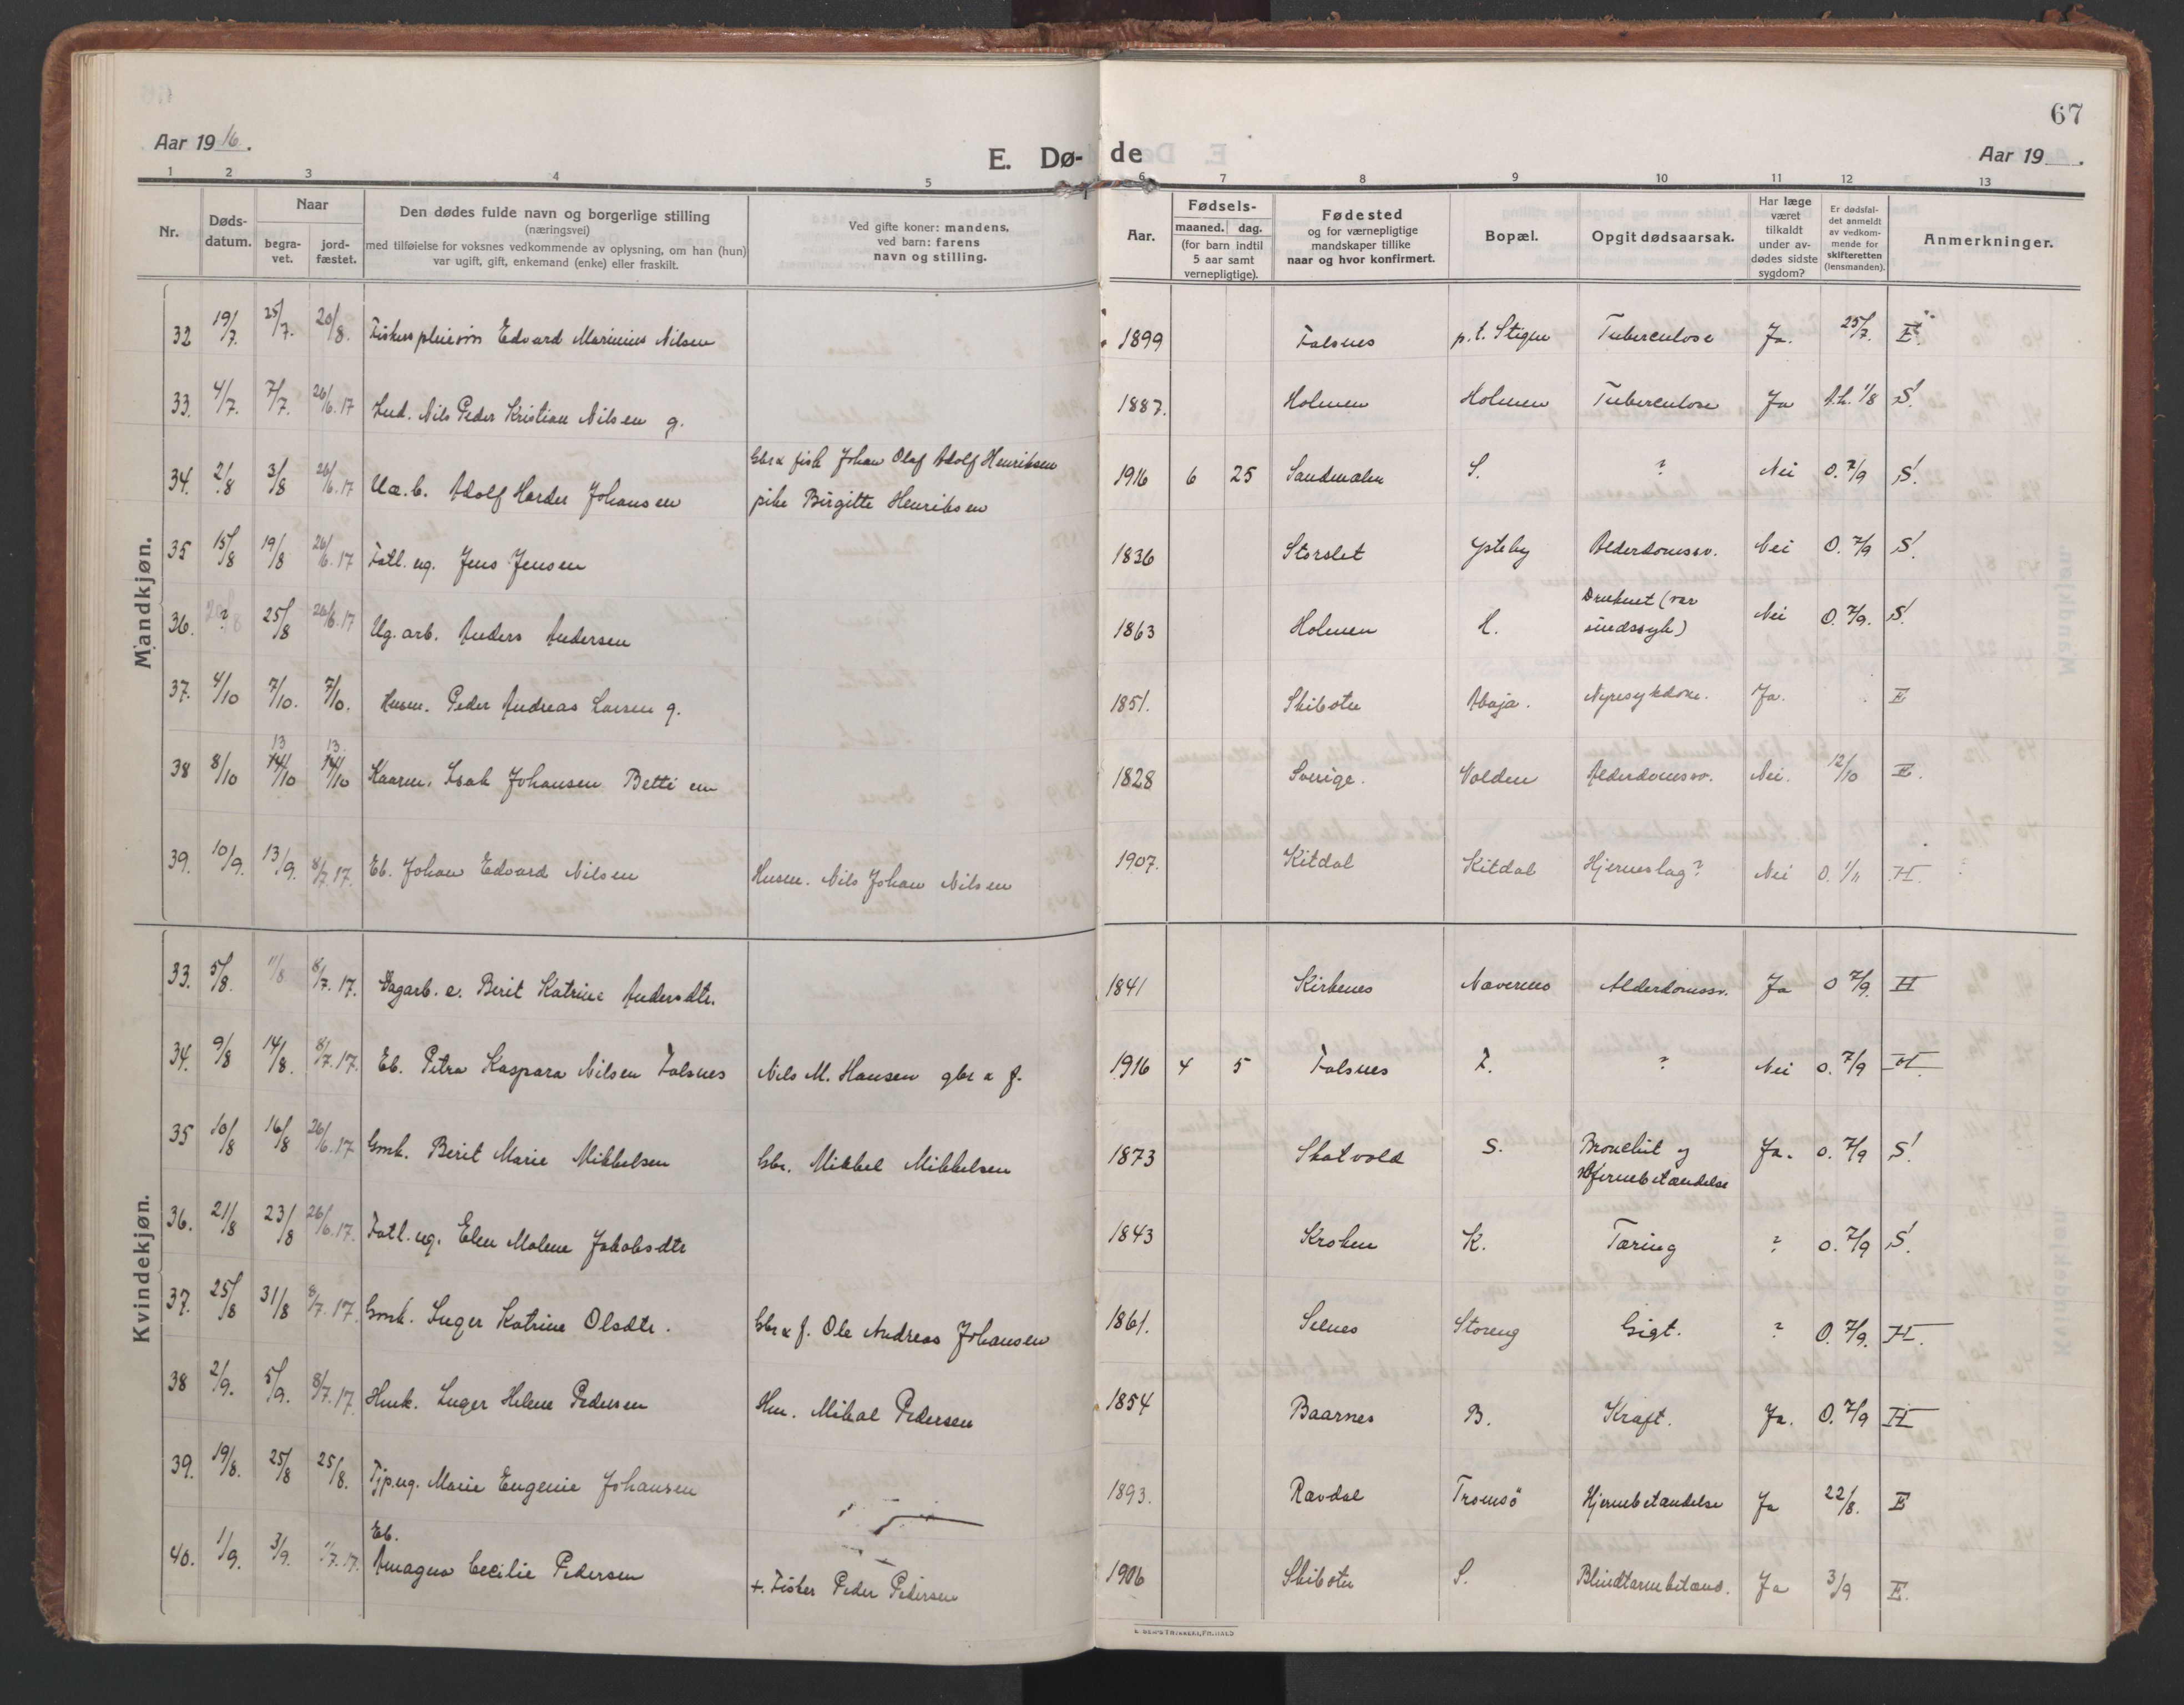 67
Aar 1916.
E. Dø-
de
Aar 19 .
1 2 3 4 5 6 7 8 9 10 11 12 13
Nr.
Døds-
datum.
Naar
begra-
vet.
jord-
fæstet.
Den dødes fulde navn og borgerlige stilling
(næringsvei)
med tilføielse for voksnes vedkommende av oplysning, om han (hun)
var ugift, gift, enkemand (enke) eller fraskilt.
Ved gifte koner: mandens,
ved barn: farens
navn og stilling.
Aar.
Fødsels-
maaned. dag.
(for barn indtil
5 aar samt
vernepligtige).
Fødested
og for værnepligtige
mandskaper tillike
naar og hvor konfirmert.
Bopæl.
Opgit dødsaarsak.
Har læge
været
tilkaldt
under av-
dødes sidste
sygdom?
Er dødsfal-
det anmeldt
av vedkom-
mende for
skifteretten
(lensmanden).
Anmerkninger.
Mandkjøn.
32 19/7. 25/7. 20/8. Edvard Marinius Nilsen 1899 Falsnes p.t. Tuberculose Ja. 25/7. E.
33. 4/7. 7/7. 26/6.17 Nils Peder Kristian Nilsen g. 1887. Holmen Holmen Tuberculose Ja 1/8 S.
Gbr & fisk Johan Olaf Adolf Henriksen
34. 2/8 3/8 26/6.17 Adolf Harder Johansen 1916 6 25 S. ? Nei O. 7/9 S.
pike Birgitte Henriksen
35 15/8 19/8 26/6.17 Fatl. ug. Jens Jensen 1836 Storslet Ysteby Alderdomssv. Nei O. 7/9 S.
36. ? 25/8 26/6.17 Ug. arb. Anders Andersen 1863 Holmen H. Druknet (var
sindssyk) Nei O. 7/9. S.
37. 4/10 7/10. 7/10. Husm. Peder Andreas Larsen g. 1851. Skibotn Nyresykdom. Ja. E
13 13.
38 8/10 14/10 14/10 Isak Johansen Betti em 1828 Sverige. Volden Alderdomssv. Nei. 12/10 E.
39. 10/9. 13/9. 8/7.17. Eb. Johan Edvard Nilsen Husm. Nils Johan Nilsen 1907. Kitdal Kitdal Hjerneslag? Nei O. 1/11 H.
Kvindekjøn.
33. 5/8. 11/8 8/7.17. Dagarb. e. Berit Katrine Andersdtr. 1841 Kirkenes Alderdomssv. Ja O 7/9. H
34. 9/8 14/8. 8/7.17. Eb. Petra Kaspara Nilsen Falsnes Nils M. Hansen gbr & f. 1916 4 5 Falsnes F. ? Nei O. 7/9 H.
35 10/8 16/8 26/6.17 Gmk. Berit Marie Mikkelsen Gbr. Mikkel Mikkelsen 1873 Skatvold S. Bronchit og
Hjernebetændelse Ja. O. 7/9 S.
36. 21/8 23/8 26/6.17. Fatl. ug. Elen Malene Jakobsdtr 1843 Kroken K. Tæring ? O. 7/9 S.
37. 25/8 31/8 8/7.17. Gmk. Inger Katrine Olsdtr. Gbr & f. Ole Andreas Johansen 1861. Selnes Storeng Gigt. ? O. 7/9. H.
38 2/9. 5/9. 8/7.17. Hmk. Inger Helene Pedersen Hm. Mikal Pedersen 1854 Baarnes B. Kræft. Ja. O. 7/9 H
39. 19/8. 25/8 25/8. Tjp. ug. Marie Eugenie Johansen 1893. Ravdal Tromsö Hjernebetændelse Ja 22/8. E
Eb.
40. 1/9. 3/9. Amagna Cecilie Pedersen +. Fisker Peder Pedersen 1906 Skibotn S. Blindtarmbetænd. Ja 3/9 E.